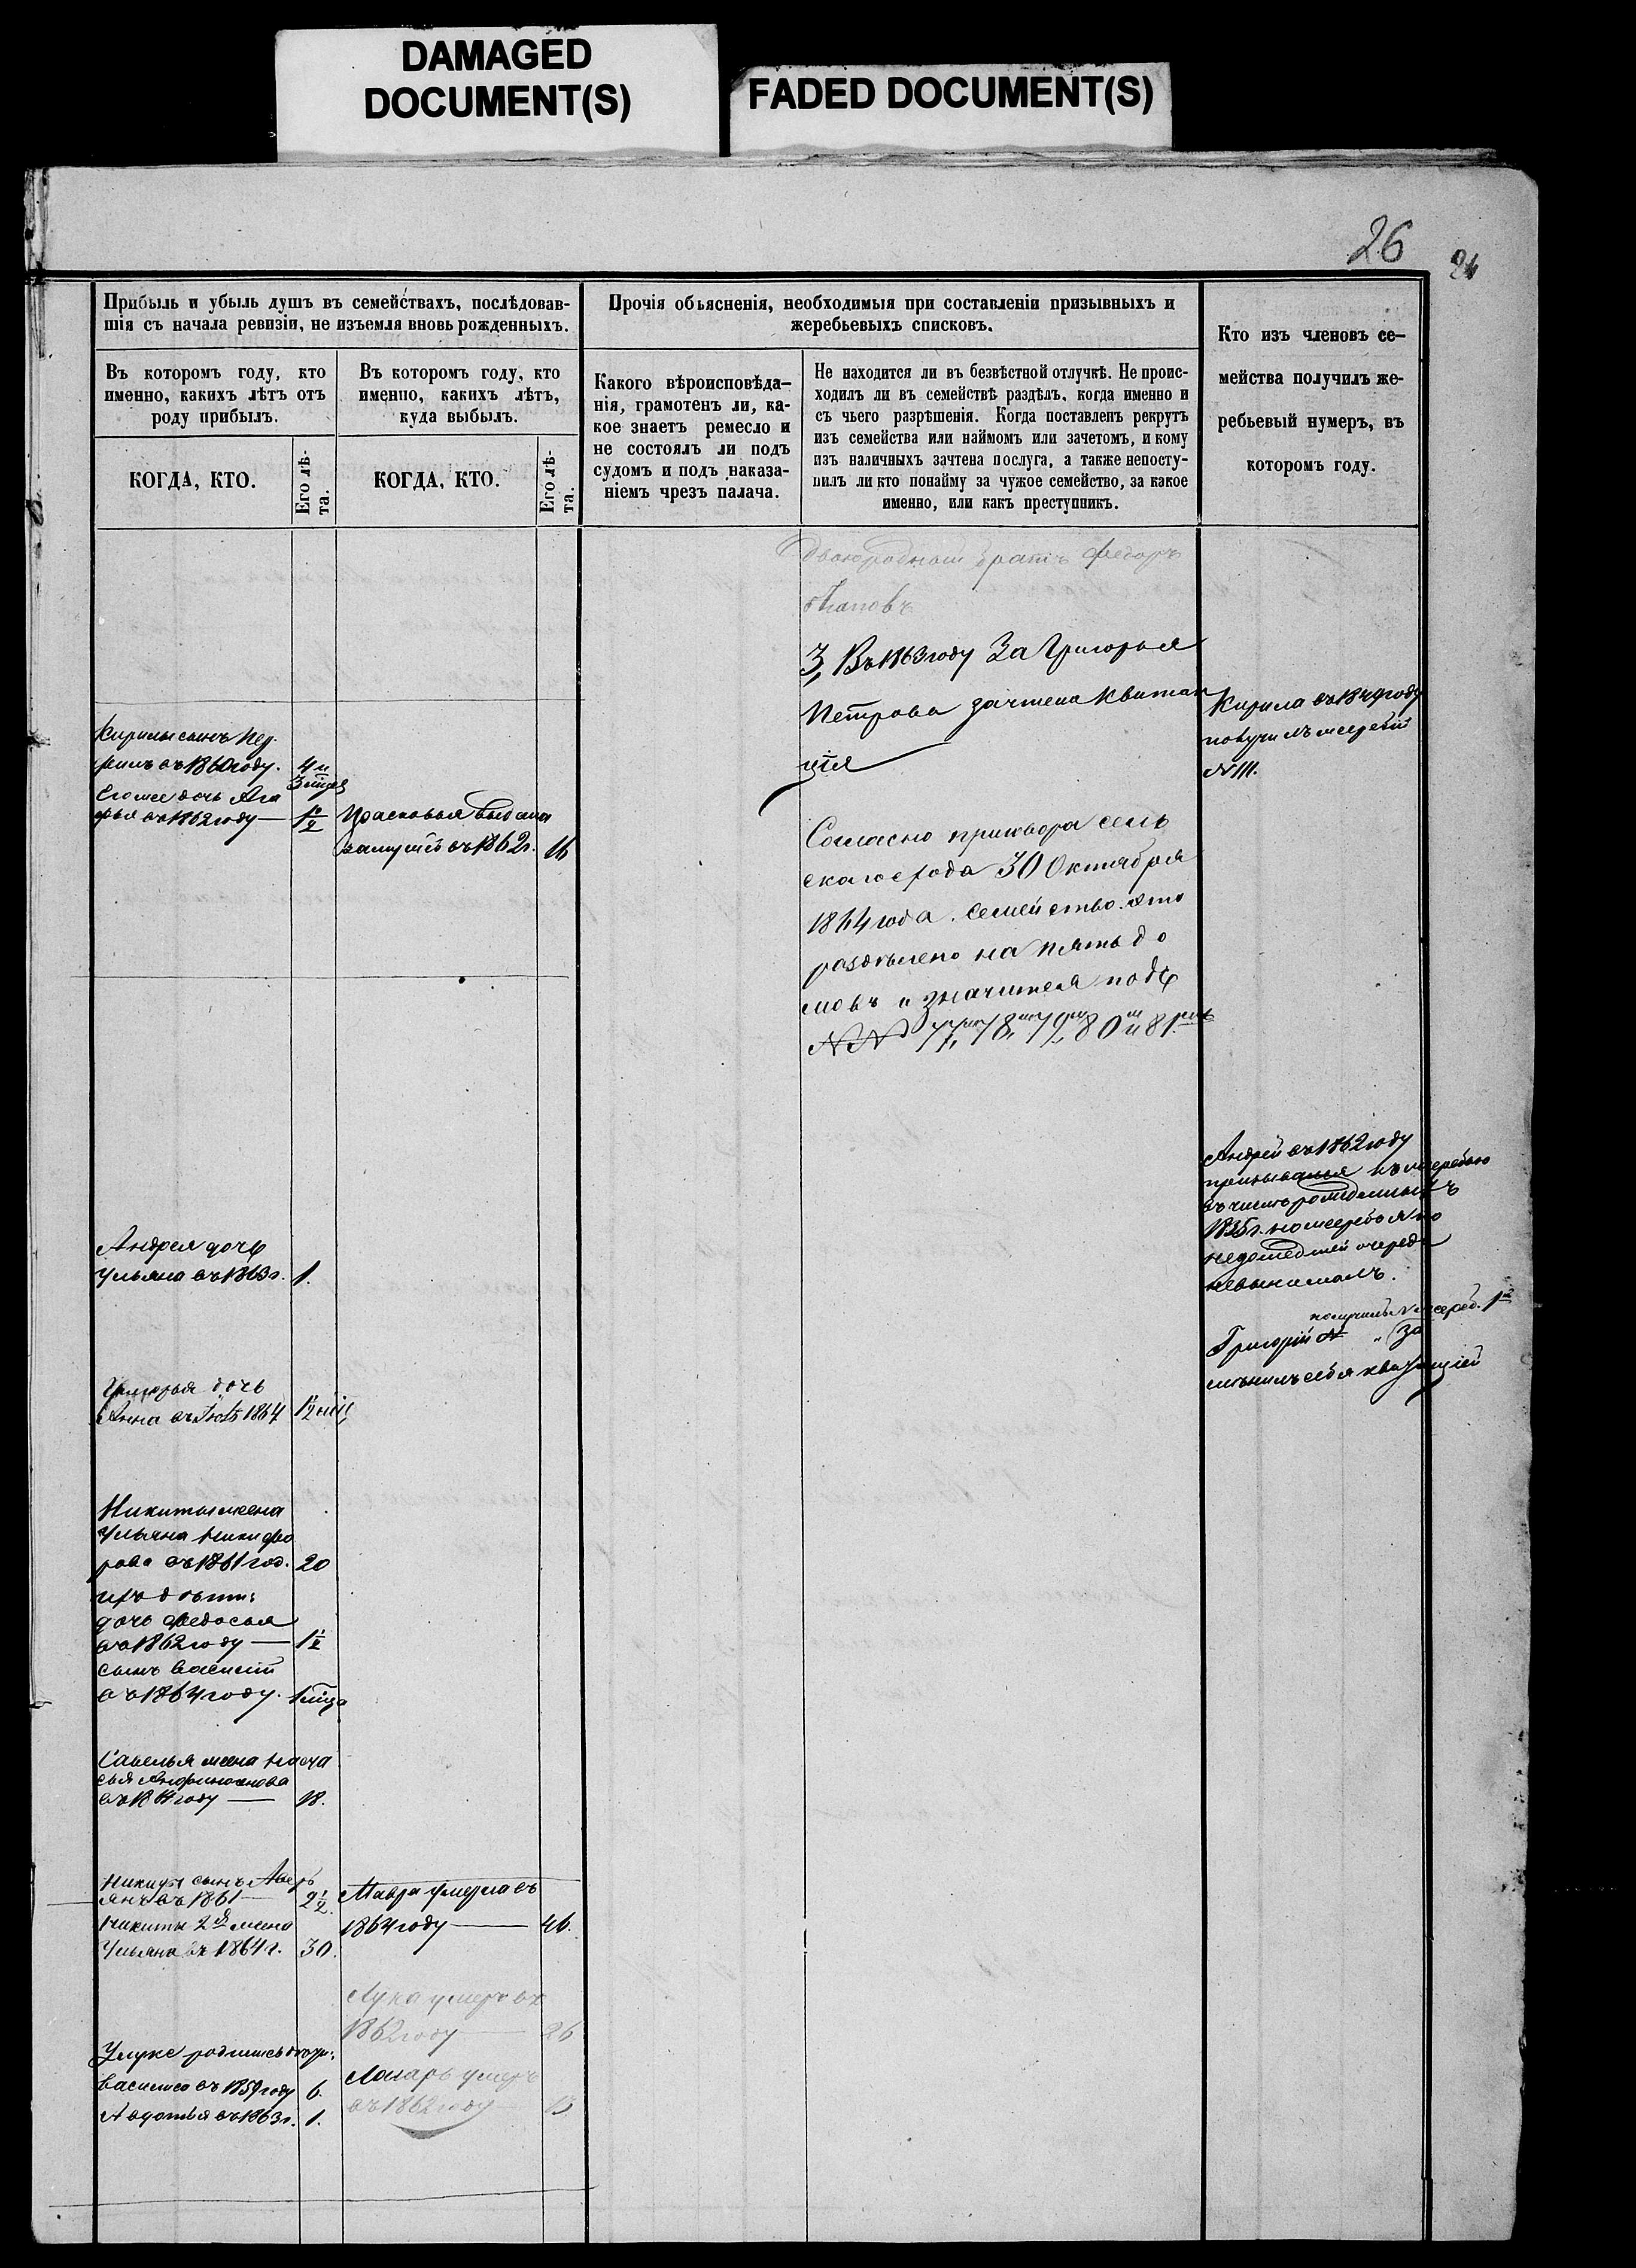 DAMAGED
DOCUMENT(S)
FADED DOCUMENT(S)
26
26
Прибыль и убыль душъ въ семействахъ, послѣдовав-
шія съ начала ревизіи, не изъемля вновь рожденныхъ.
Въ которомъ году, кто
именно, какихъ лѣтъ отъ
роду прибылъ.
КОГДА, КТО.
Его лѣ-
та.
Въ которомъ году, кто
именно, какихъ лѣтъ,
куда выбылъ.
КОГДА, КТО.
Его лѣ-
та.
Прочія объясненія, необходимыя при составленіи призывныхъ и
жеребьевыхъ списковъ.
Какого вѣроисповѣда-
нія, грамотенъ ли, ка-
кое знаетъ ремесло и
не состоялъ ли подъ
судомъ и подъ наказа-
ніемъ чрезъ палача.
Не находится ли въ безвѣстной отлучкѣ. Не проис-
ходилъ ли въ семействѣ раздѣлъ, когда именно и
съ чьего разрѣшенія. Когда поставленъ рекрутъ
изъ семейства или наймомъ или зачетомъ, и кому
изъ наличныхъ зачтена послуга, а также непосту-
пилъ ли кто понайму за чужое семейство, за какое
именно, или какъ преступникъ.
Кто изъ членовъ се-
мейства получилъ же-
ребьевый нумеръ, въ
которомъ году.
Кирилы сынъ
въ 1860 году. 4 и
3 мѣся
Его же дочь Ага
фья въ 1862 году — 1½
Андрея дочь
Ульяна въ 1863 г. 1.
Григорья дочь
Анна въ 1864
Никиты жена
Ульяна Никифо
рова въ 1861 год. 20
ихъ дѣти:
дочь Федосья
въ 1862 году — 1½
сынъ Василій
въ 1864 году. 1 мѣца
Савелья жена Наста
сья
году — 18.
Никиты сынъ Авер
янъ въ 1861 — 2½.
Никиты 2я жена
Ульяна въ 1864 г. 30.
У Луке родились дочери:
Василиса въ 1859 году 6.
Авдотья въ 1863 г. 1.
Прасковья выдана
замужъ въ 1862 г. 16
Мавра умерла въ
1864 году — 46.
Лука умеръ въ
1862 году — 26
умеръ
въ 1862 году — 13
Двоюродный братъ Федоръ
3, Въ 1863 году За Григорья
Петрова зачтена Квитан
ція
Согласно приговора сель
скаго схода 30 Октября
1864 года. семейство это
раздѣлено на пять до
мовъ и значится подъ
NN 77, 78, 79, 80 и 81.
Кирила въ 1849 году
получилъ жеребій
N 111.
Андрей въ 1862 году
призывался къ жеребью
въ число рожденныхъ
1835 г. но жеребья по
недошедшей очереди
невынималъ.
получилъ N жереб. 1й
Григорій N " За
мѣнилъ себя квитанціей